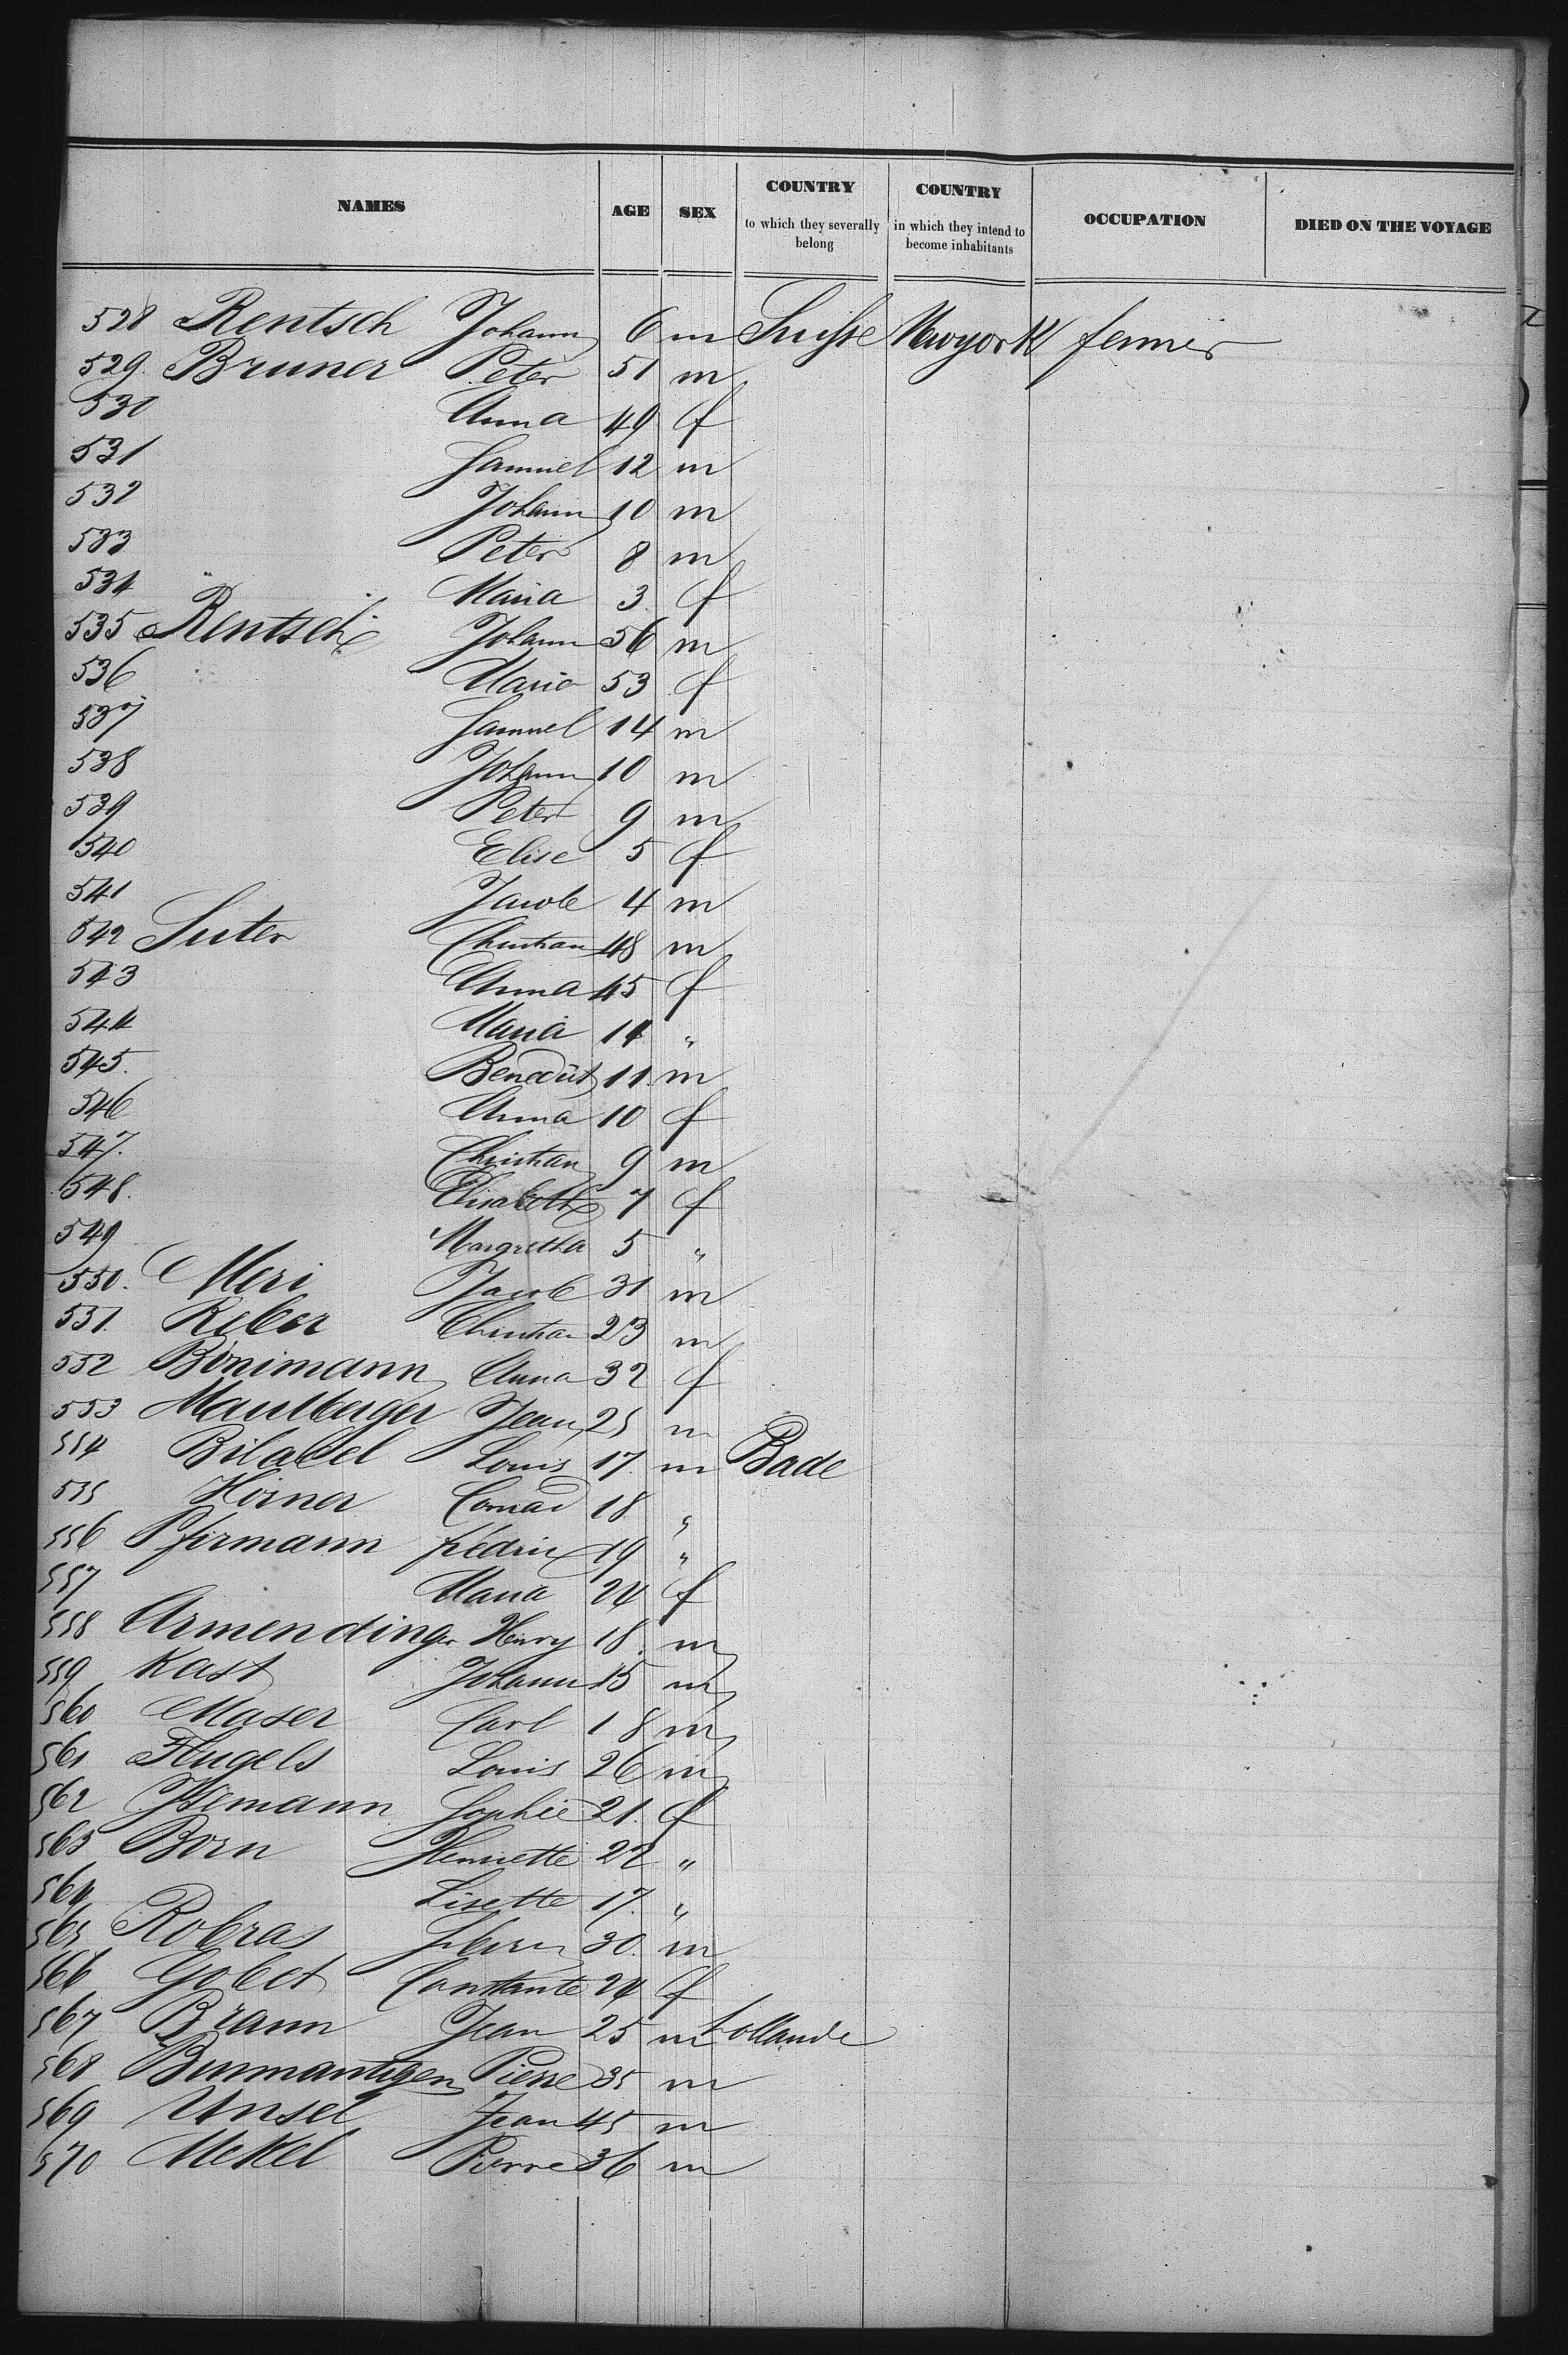 NAMES AGE SEX COUNTRY to which they severally belong COUNTRY in which they intend to become inhabitants OCCUPATION DIED ON THE VOYAGE
528 Rentsch Johann 6 m Suisse Newyork fermier
529. Bruner Peter 51 m
530 Anna 49 f
531 Samuel 12 m
532 Johann 10 m
533 Peter 8 m
534 " Maria 3 f
535 Rentsch Johann 56 m
536 Maria 53 f
537 Samuel 14 m
538 Johann 10 m
539 Peter 9 m
540 Elise 5 f
541 Jacob 4 m
542 Suter Christian 48 m
543 Anna 45 f
544 Maria 14 "
545. Benedict 11 m
546 Anna 10 f
547. Christian 9 m
548. Elisabeth 7 f
549 Margretha 5 "
550. Meri Jacob 31 m
551. Reber Christian 23 m
552 Bönimann Anna 32 f
553 Maulberger Jean 25 m
554 Bilabel Louis 17. m Bade
555 Hörner Conrad 18 "
556 Pfirmann fredric 19 "
557 Maria 24 f
558 Armendinger Henry 18. m
559 Kast Johann 15 m
560 Maser Carl 18 m
561 Flugels Louis 26 m
562 Isemann Sophie 21. f
563 Born Henriette 22 "
564 Lisette 17. "
565 Robras 30. m
566 Gobet Constante 24 f
567 Brann Jean 25 m hollande
568 Pierre 35 m
569 Unsel Jean 45 m
570 Mekel Pierre 36 m